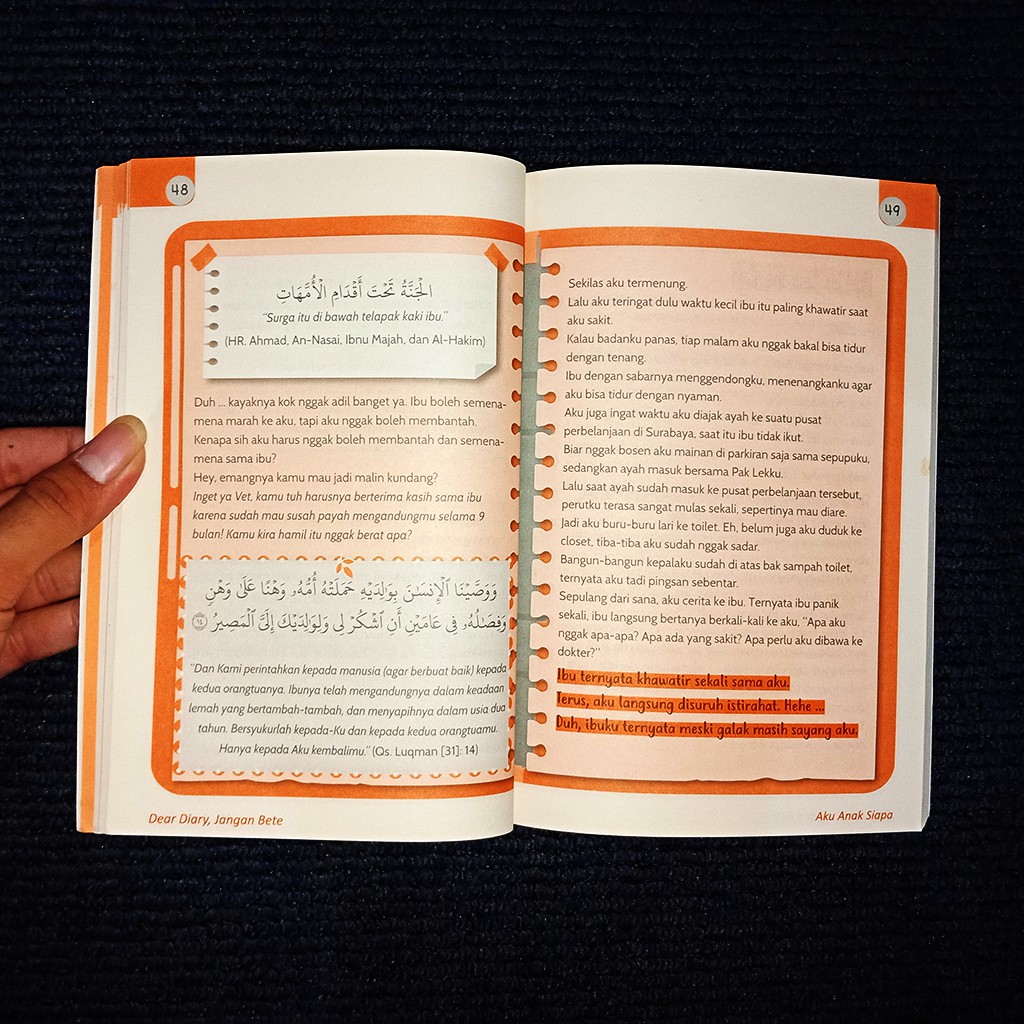 48
الْجَنَّةُ تَحْتَ أَقْدَامِ الْأُمَّهَاتِ
"Surga itu di bawah telapak kaki ibu."
(HR. Ahmad, An-Nasai, Ibnu Majah, dan Al-Hakim)
Duh ... kayaknya kok nggak adil banget ya. Ibu boleh semena-
mena marah ke aku, tapi aku nggak boleh membantah.
Kenapa sih aku harus nggak boleh membantah dan semena-
mena sama ibu?
Hey, emangnya kamu mau jadi malin kundang?
Inget ya Vet, kamu tuh harusnya berterima kasih sama ibu
karena sudah mau susah payah mengandungmu selama 9
bulan! Kamu kira hamil itu nggak berat apa?
وَوَصَّيْنَا ٱلْإِنسَٰنَ بِوَٰلِدَيْهِ حَمَلَتْهُ أُمُّهُۥ وَهْنًا عَلَىٰ وَهْنٍ
وَفِصَٰلُهُۥ فِى عَامَيْنِ أَنِ ٱشْكُرْ لِى وَلِوَٰلِدَيْكَ إِلَىَّ ٱلْمَصِيرُ ١٤
"Dan Kami perintahkan kepada manusia (agar berbuat baik) kepada
kedua orangtuanya. Ibunya telah mengandungnya dalam keadaan
lemah yang bertambah-tambah, dan menyapihnya dalam usia dua
tahun. Bersyukurlah kepada-Ku dan kepada kedua orangtuamu.
Hanya kepada Aku kembalimu." (Qs. Luqman [31]: 14)
Dear Diary, Jangan Bete
49
Sekilas aku termenung.
Lalu aku teringat dulu waktu kecil ibu itu paling khawatir saat
aku sakit.
Kalau badanku panas, tiap malam aku nggak bakal bisa tidur
dengan tenang.
Ibu dengan sabarnya menggendongku, menenangkanku agar
aku bisa tidur dengan nyaman.
Aku juga ingat waktu aku diajak ayah ke suatu pusat
perbelanjaan di Surabaya, saat itu ibu tidak ikut.
Biar nggak bosen aku mainan di parkiran saja sama sepupuku,
sedangkan ayah masuk bersama Pak Lekku.
Lalu saat ayah sudah masuk ke pusat perbelanjaan tersebut,
perutku terasa sangat mulas sekali, sepertinya mau diare.
Jadi aku buru-buru lari ke toilet. Eh, belum juga aku duduk ke
closet, tiba-tiba aku sudah nggak sadar.
Bangun-bangun kepalaku sudah di atas bak sampah toilet,
ternyata aku tadi pingsan sebentar.
Sepulang dari sana, aku cerita ke ibu. Ternyata ibu panik
sekali, ibu langsung bertanya berkali-kali ke aku. "Apa aku
nggak apa-apa? Apa ada yang sakit? Apa perlu aku dibawa ke
dokter?"
Ibu ternyata khawatir sekali sama aku.
Terus, aku langsung disuruh istirahat. Hehe ...
Duh, ibuku ternyata meski galak masih sayang aku.
Aku Anak Siapa